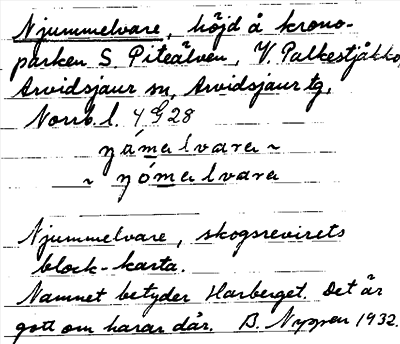 Njummelvare, höjd å krono-
parken S. Piteälven, V. Palkestjåkko,
Arvidsjaur sn, Arvidsjaur tg,
Norrb. l. 4 G 28
ŋámalvara ~
~ ŋómalvara
Njummelvare, skogsrevirets
block-karta.
Namnet betyder Harberget. Det är
gott om harar där. B. Nyman 1932.